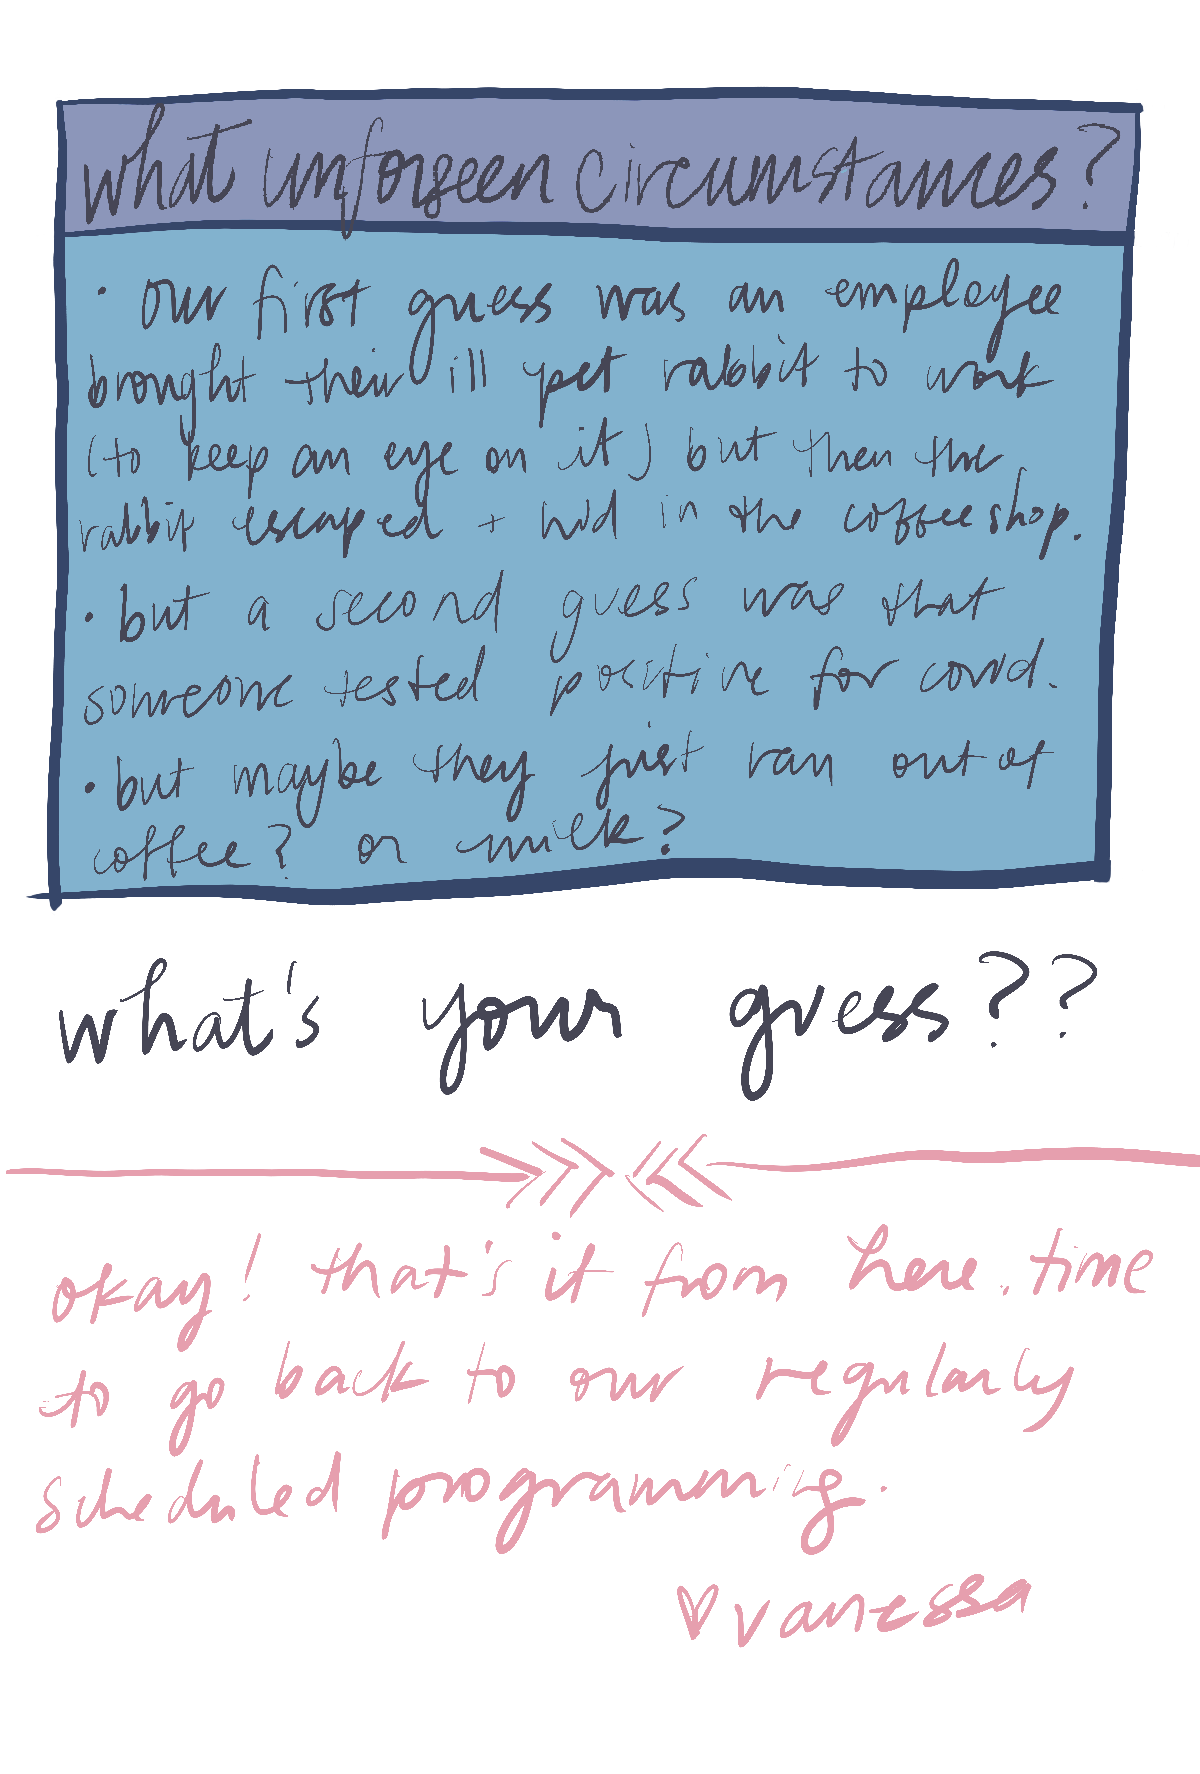 what unforseen circumstances?
• our first guess was an employee
brought their ill pet rabbit to work
(to keep an eye on it) but then the
rabbit escaped + hid in the coffee shop.
• but a second guess was that
someone tested positive for covid.
• but maybe they just ran out of
coffee? or milk?
what's your guess??
okay! that's it from here. time
to go back to our regularly
scheduled programming.
♡vanessa